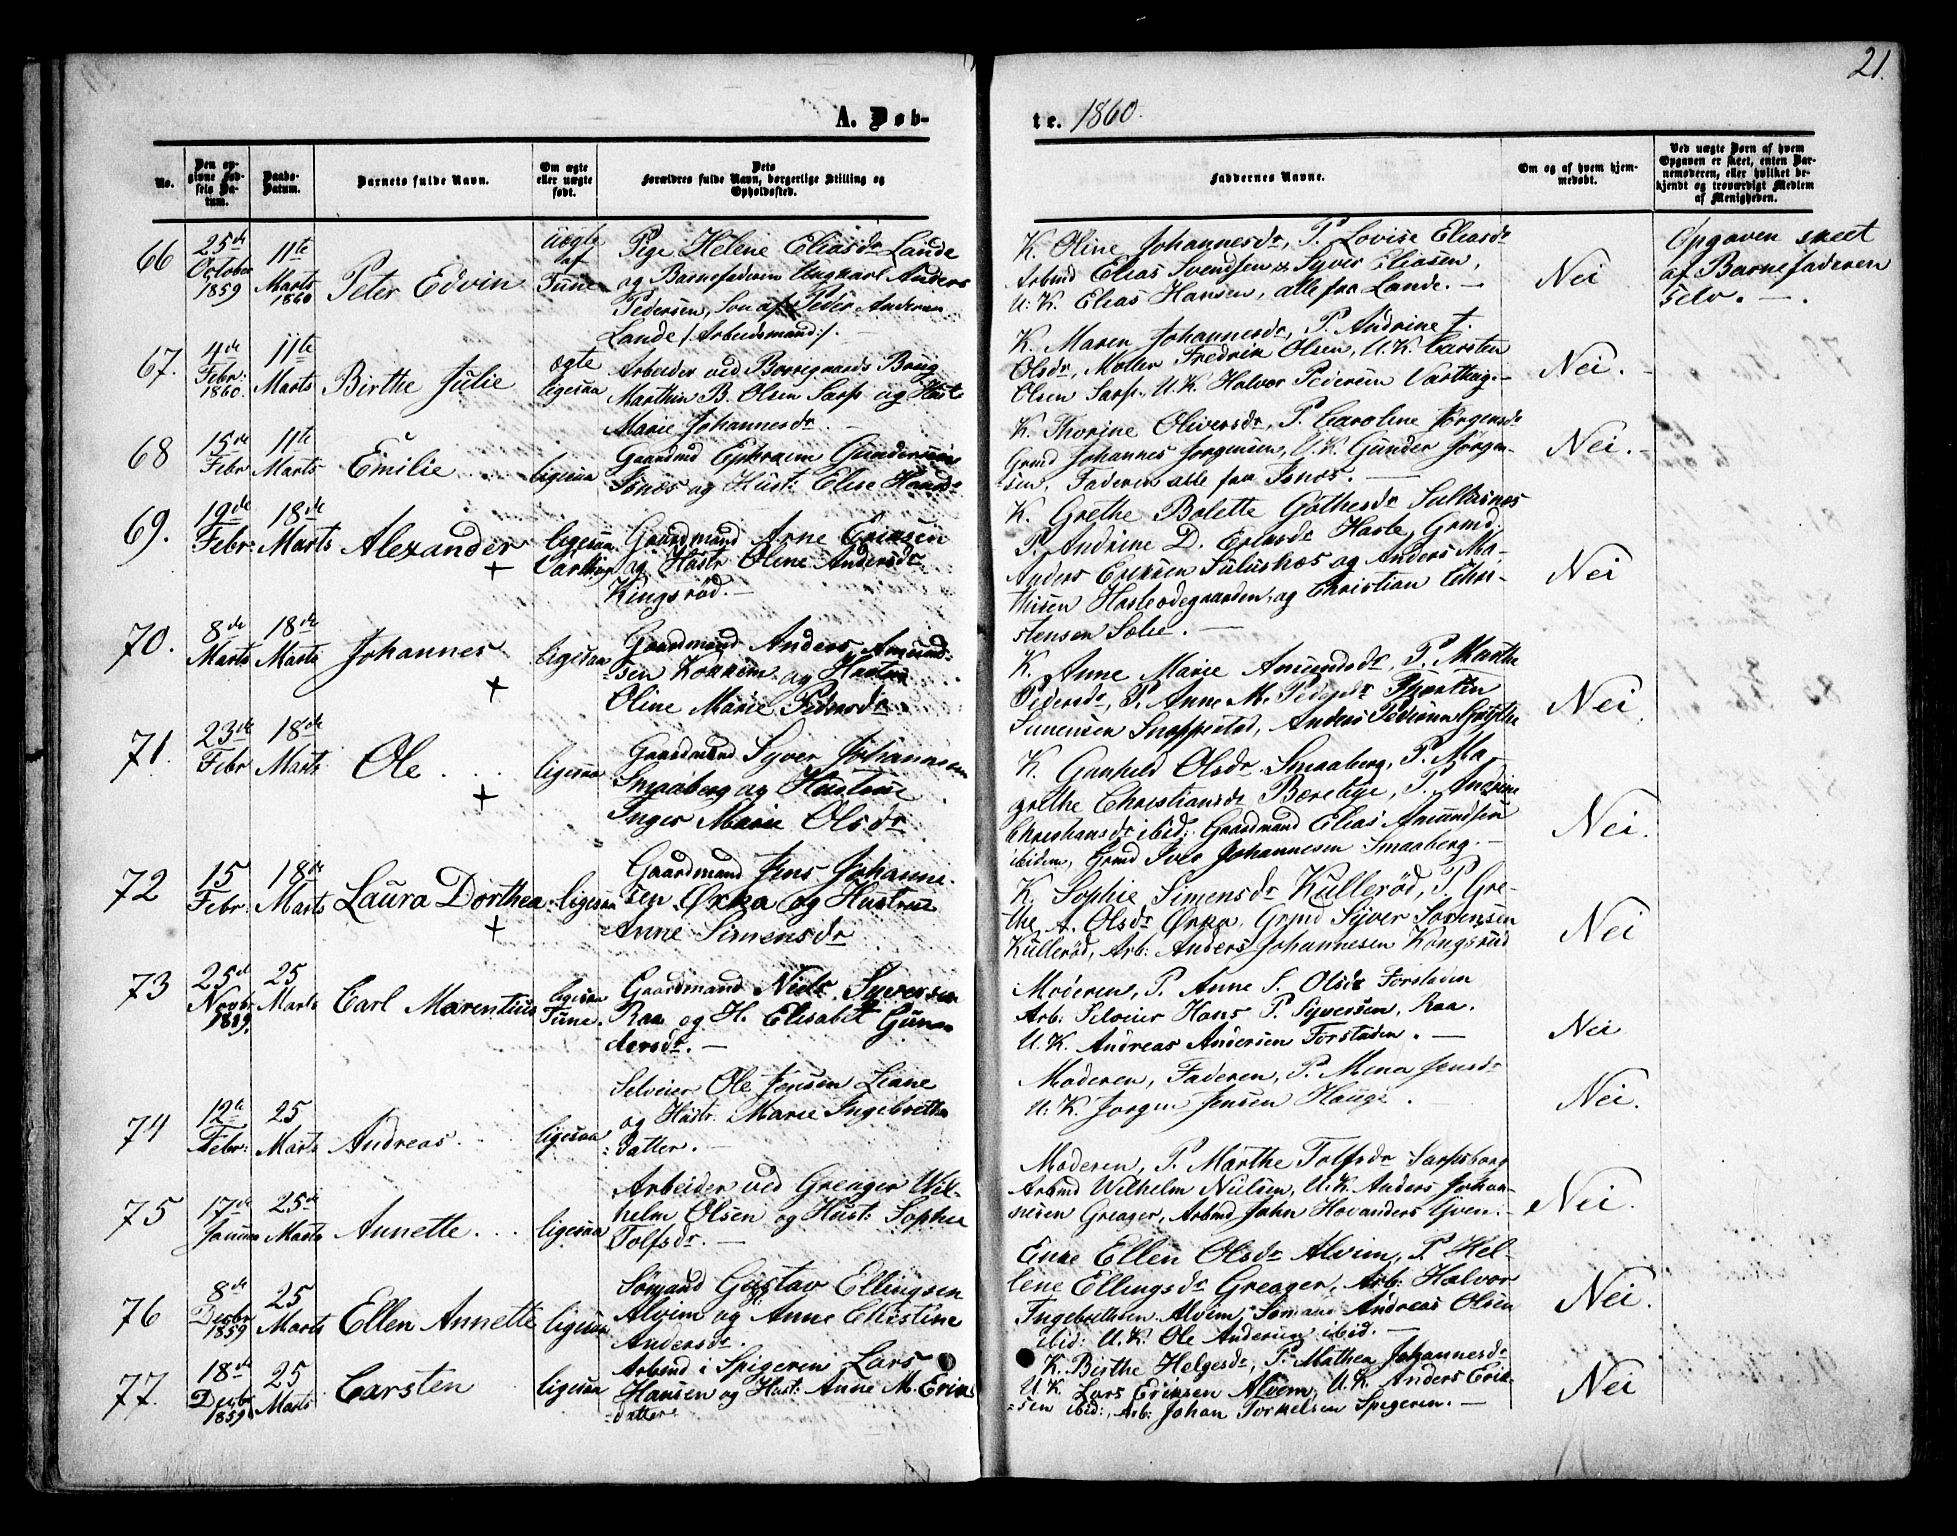 21.
A. Døb-
te. 1860.
No.
Den opgivne Fødsels Datum.
Daabs-Datum.
Barnets fulde Navn.
Om ægte eller uægte født.
Dets Forældres fulde Navn, borgerlige Stilling og Opholdssted.
Faddernes Navne.
Om og af hvem hjemmedøbt.
Ved uægte Børn af hvem Opgaven er skeet, enten Barnemoderen, eller hvilket bekjendt og troværdigt Medlem af Menigheden.
66
25de October 1859
11te Marts 1860
Peter Edvin
Uægte af Tune
Pige Helene Eliasdr Lande
og Barnefaderen Ungkarl Anders
Pedersen, Søn af Peder Andersen
Lande /:Arbeidsmand:/.
K. Oline Johannesdr, P. Lovise Eliasdr
Arbmd Elias Svendsen, Syver Eliasen,
U.K. Elias Hansen, alle fra Lande. —
Nei
Opgaven skeet
af Barnefaderen
selv. —
67.
4de Febr. 1860.
11te Marts
Birthe Julie
ægte ligesaa
Arbeider ved Borregaards Brug
Marthin B. Olsen Sarp og Hust
Marie Johannesdr.
K. Maren Johannesdr, P. Andrine T.
Olsdr, Møller Fredrik Olsen, U.K. Carsten
Olsen Sarp, U.K. Halvor Pedersen Varthug. —
Nei.
68
15de Febr
11te Marts
Emilie
ligesaa
Gaardmd Ephraem Gundersen
Isnes og Hust: Elise
K. Thorine Oliversdr, P. Caroline Jørgensdr
Grmd Johannes Jørgensen, U.K. Gunder Jørgen-
sen, Faderen alle fra Isnes. —
Nei.
69.
19de Febr:
18de Marts
Alexander
+
ligesaa
Gaardmand Arne Eriksen
og Hustr Oline Andersdr
Kingsrød. —
K. Grethe Bolette
P. Andrine D. Hasle, Grmd:
Anders Eriksen og Anders Ma-
thisen Hasleødegaarden, og Christian Chri-
stensen Solie. —
Nei
70.
8de Marts
18de Marts
Johannes
+
ligesaa
Gaardmand Anders Amund-
sen og Hustru
Oline Marie Pedersdr
K. Anne Marie Amundsdr, P. Marthe
Pedersdr, P. Anne M. Pedersdr
Simensen Anders Pedersen
Nei
71.
23de Febr
18de Marts
Ole
+
ligesaa
Gaardmand Syver Johannesen
Smaaberg og Hustrue
Inger Marie Olsdr
K. Gunhild Olsdr Smaaberg, P. Ma-
grethe Christiansdr P. Andrine
Christiansdr ibid: Gaardmand Elias Amundsen
ibidem, Grmd Iver Johannesen Smaaberg. —
Nei.
72
15 Febr:
18de Marts
Laura Dorthea
+
ligesaa
Gaardmand Jens Johanne-
sen Ørka og Hustrue
Anne Simensdr
K. Sophie Simensdr Kullerød, P. Gre-
the A. Olsdr Ørka, Grmd Syver Sørensen
Kullerød, Arb: Anders Johannesen Kongsrud
Nei
73
25de Novbr 1859.
25 Marts
Carl Marentius
ligesaa Tune.
Gaardmand Niels Syversen
Raa og H. Elisabet Gun-
dersdr. —
Moderen, P. Anne S. Olsdr
Arb: Selveier Hans P. Syversen, Raa.
U.K. Andreas Andersen
Nei
74
12te Febr:
25 Marts
Andreas.
ligesaa
Selveier Ole Jensen
og Hustr. Marie Ingebreths
Datter. —
Moderen, Faderen, P. Mina Jensdr
U.K. Jørgen Jensen Hauge.
Nei.
75
17de Januar
25de Marts
Annette.
ligesaa
Arbeider ved Greager Wil-
helm Olsen og Hust: Sophie
Tolfsdr. —
Moderen, P. Marthe Tolfsdr Sarpsborg
Arbmd Wilhelm Nielsen, U.K. Anders Johan-
nesen Greager, Arbmd
Nei.
76
8de Decbr 1859
25 Marts
Ellen Annette
ligesaa
Sømand Gustav Ellingsen
Alvim og Anne Christine
Andersdr.
Enke Ellen Olsdr Alvim, P. Hel-
lene Ellingsdr Greager, Arb: Halvor
Ingebrethsen Alvim, Sømand Andreas Olsen
ibid: U.K. Ole Andersen ibid. —
Nei.
77.
18de Decbr 1859
25 Marts
Carsten
ligesaa
Arbmd i Spigeren Lars
Hansen og Hust: Anne M. Eriks
datter
K. Birthe Helgesdr, P. Mathea Johannesdr
U.K. Lars Eriksen Alvim, U.K. Anders Erik-
sen ibid:, Arb: Johan Torkelsen Spigeren. —
Nei